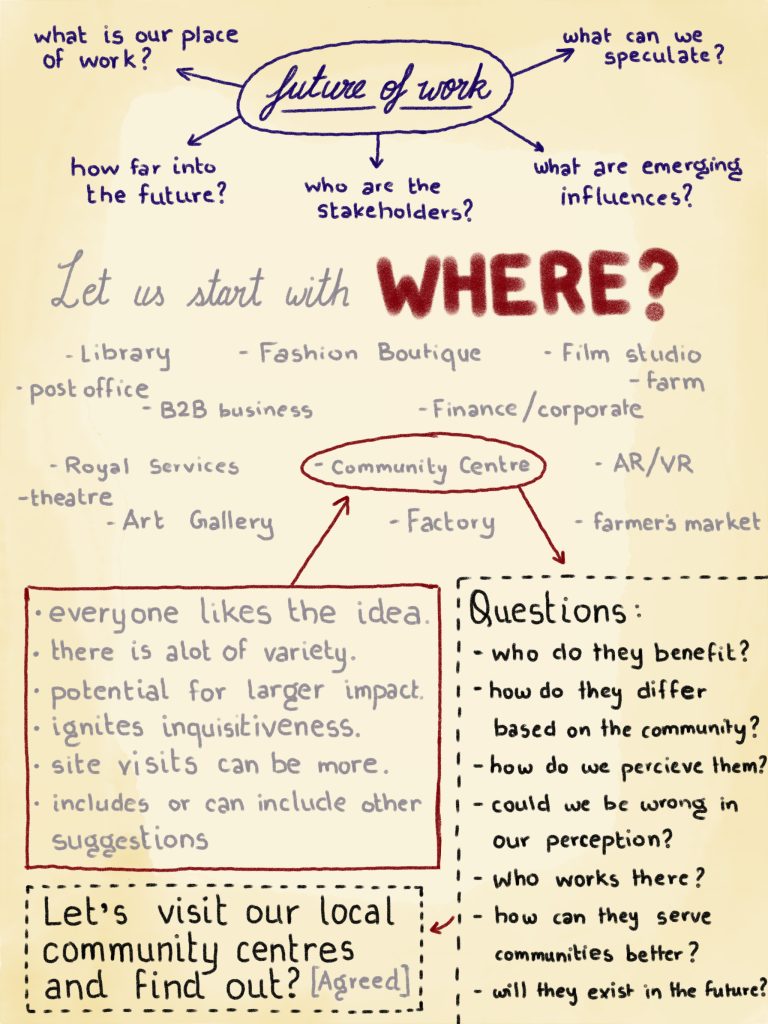 what is our place
of work?
future of work
what can we
speculate?
how far into
the future?
who are the
stakeholders?
what are emerging
influences?
Let us start with WHERE?
- Library
- Fashion Boutique
- Film studio
- post office
- farm
- B2B business
- Finance/corporate
- Royal Services
- Community Centre
- AR/VR
- theatre
- Art Gallery
- Factory
- farmer's market
• everyone likes the idea.
• there is alot of variety.
• potential for larger impact.
• ignites inquisitiveness.
• site visits can be more.
• includes or can include other
suggestions
Questions:
- who do they benefit?
- how do they differ
based on the community?
- how do we percieve them?
- could we be wrong in
our perception?
- Who works there?
- how can they serve
communities better?
- will they exist in the future?
Let's visit our local
community centres
and find out? [Agreed]